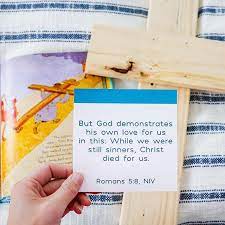 But God demonstrates
his own love for us
in this: While we were
still sinners, Christ
died for us.
Romans 5:8, NIV